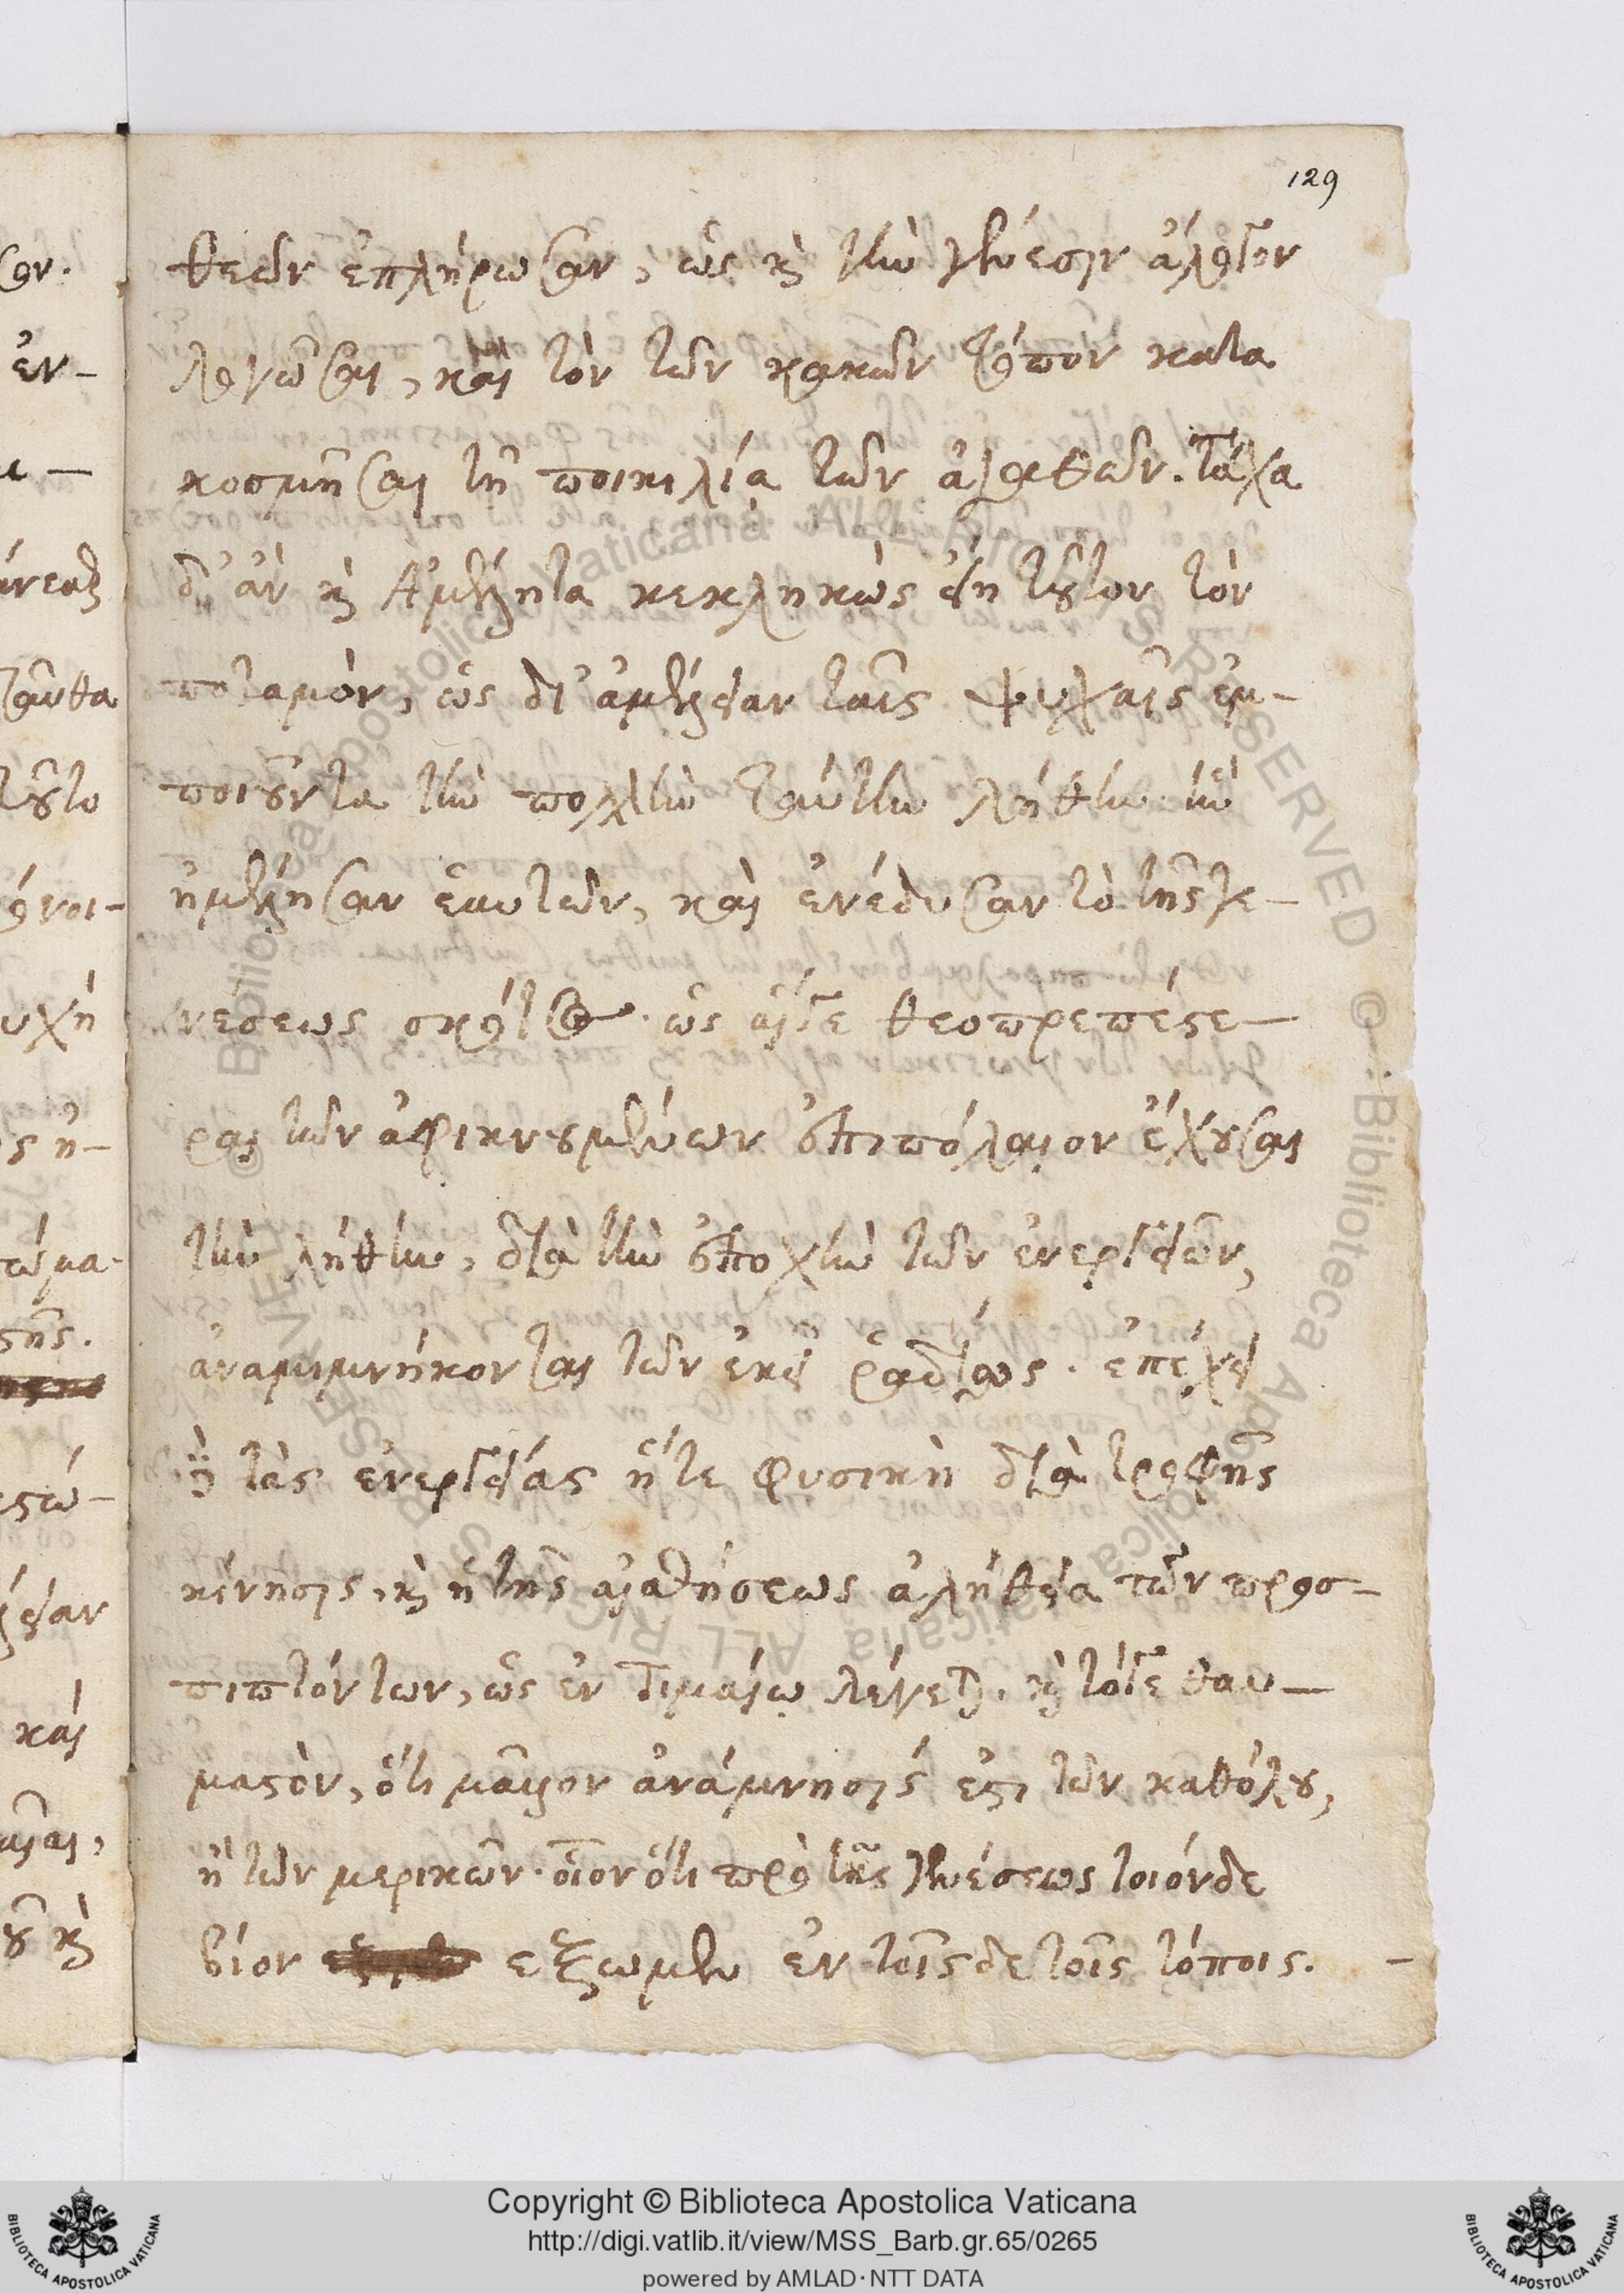 129
θεῶν ἐπλήρωσαν, ὡς κὶ τὴν γένεσιν ἄλσος τῶν
λογῶσαι, καὶ τὸν τῶν κακῶν τόπον κατα
κοσμῆσαι τῇ ποικιλίᾳ τῶν ἀγαθῶν. τάχα
δ' ἂν κὶ Ἀμέλητα κεκληκὼς εἴη τοῦτον τὸν
ποταμὸν, ὡς δι' ἀμέλειαν ταῖς ψυχαῖς ἐμ-
ποιοῦντα τὴν πολλὴν ταύτην λήθην. ἣν
ἠμέλησαν ἑαυτῶν, καὶ ἐνέδυσαν τὸ τῆς γε-
νέσεως σκότος. ὡς αἵγε θεοπρεπέστε-
ραι τῶν ἀφικνουμένων ἐπιπόλαιον ἔχουσαι
τὴν λήθην, διὰ τὴν ἐποχὴν τῶν ἐνεργειῶν,
ἀναμιμνήκονται τῶν ἐκεῖ ῥαδίως. ἐπέχει
δὲ τὰς ἐνεργείας ἥτε φυσικὴ διὰ τροφῆς
κίνησις, κὶ ἡ τῆς αἰσθήσεως ἀλήθεια τῶν προσ-
πιπτόντων, ὡς ἐν Τιμαίῳ λέγεται. κὶ τότε θαυ-
μαστὸν, ὅτι μᾶλλον ἀνάμνησίς ἐστι τῶν καθόλου,
ἢ τῶν μερικῶν. οἷον ὅτι πρὸ τῆς γενέσεως τοιόνδε
βίον ἔζωμεν ἐν τοῖςδε τοῖς τόποις. -
Copyright © Biblioteca Apostolica Vaticana
http://digi.vatlib.it/view/MSS_Barb.gr.65/0265
powered by AMLAD·NTT DATA
BIBLIOTECA APOSTOLICA VATICANA
BIBLIOTECA APOSTOLICA VATICANA